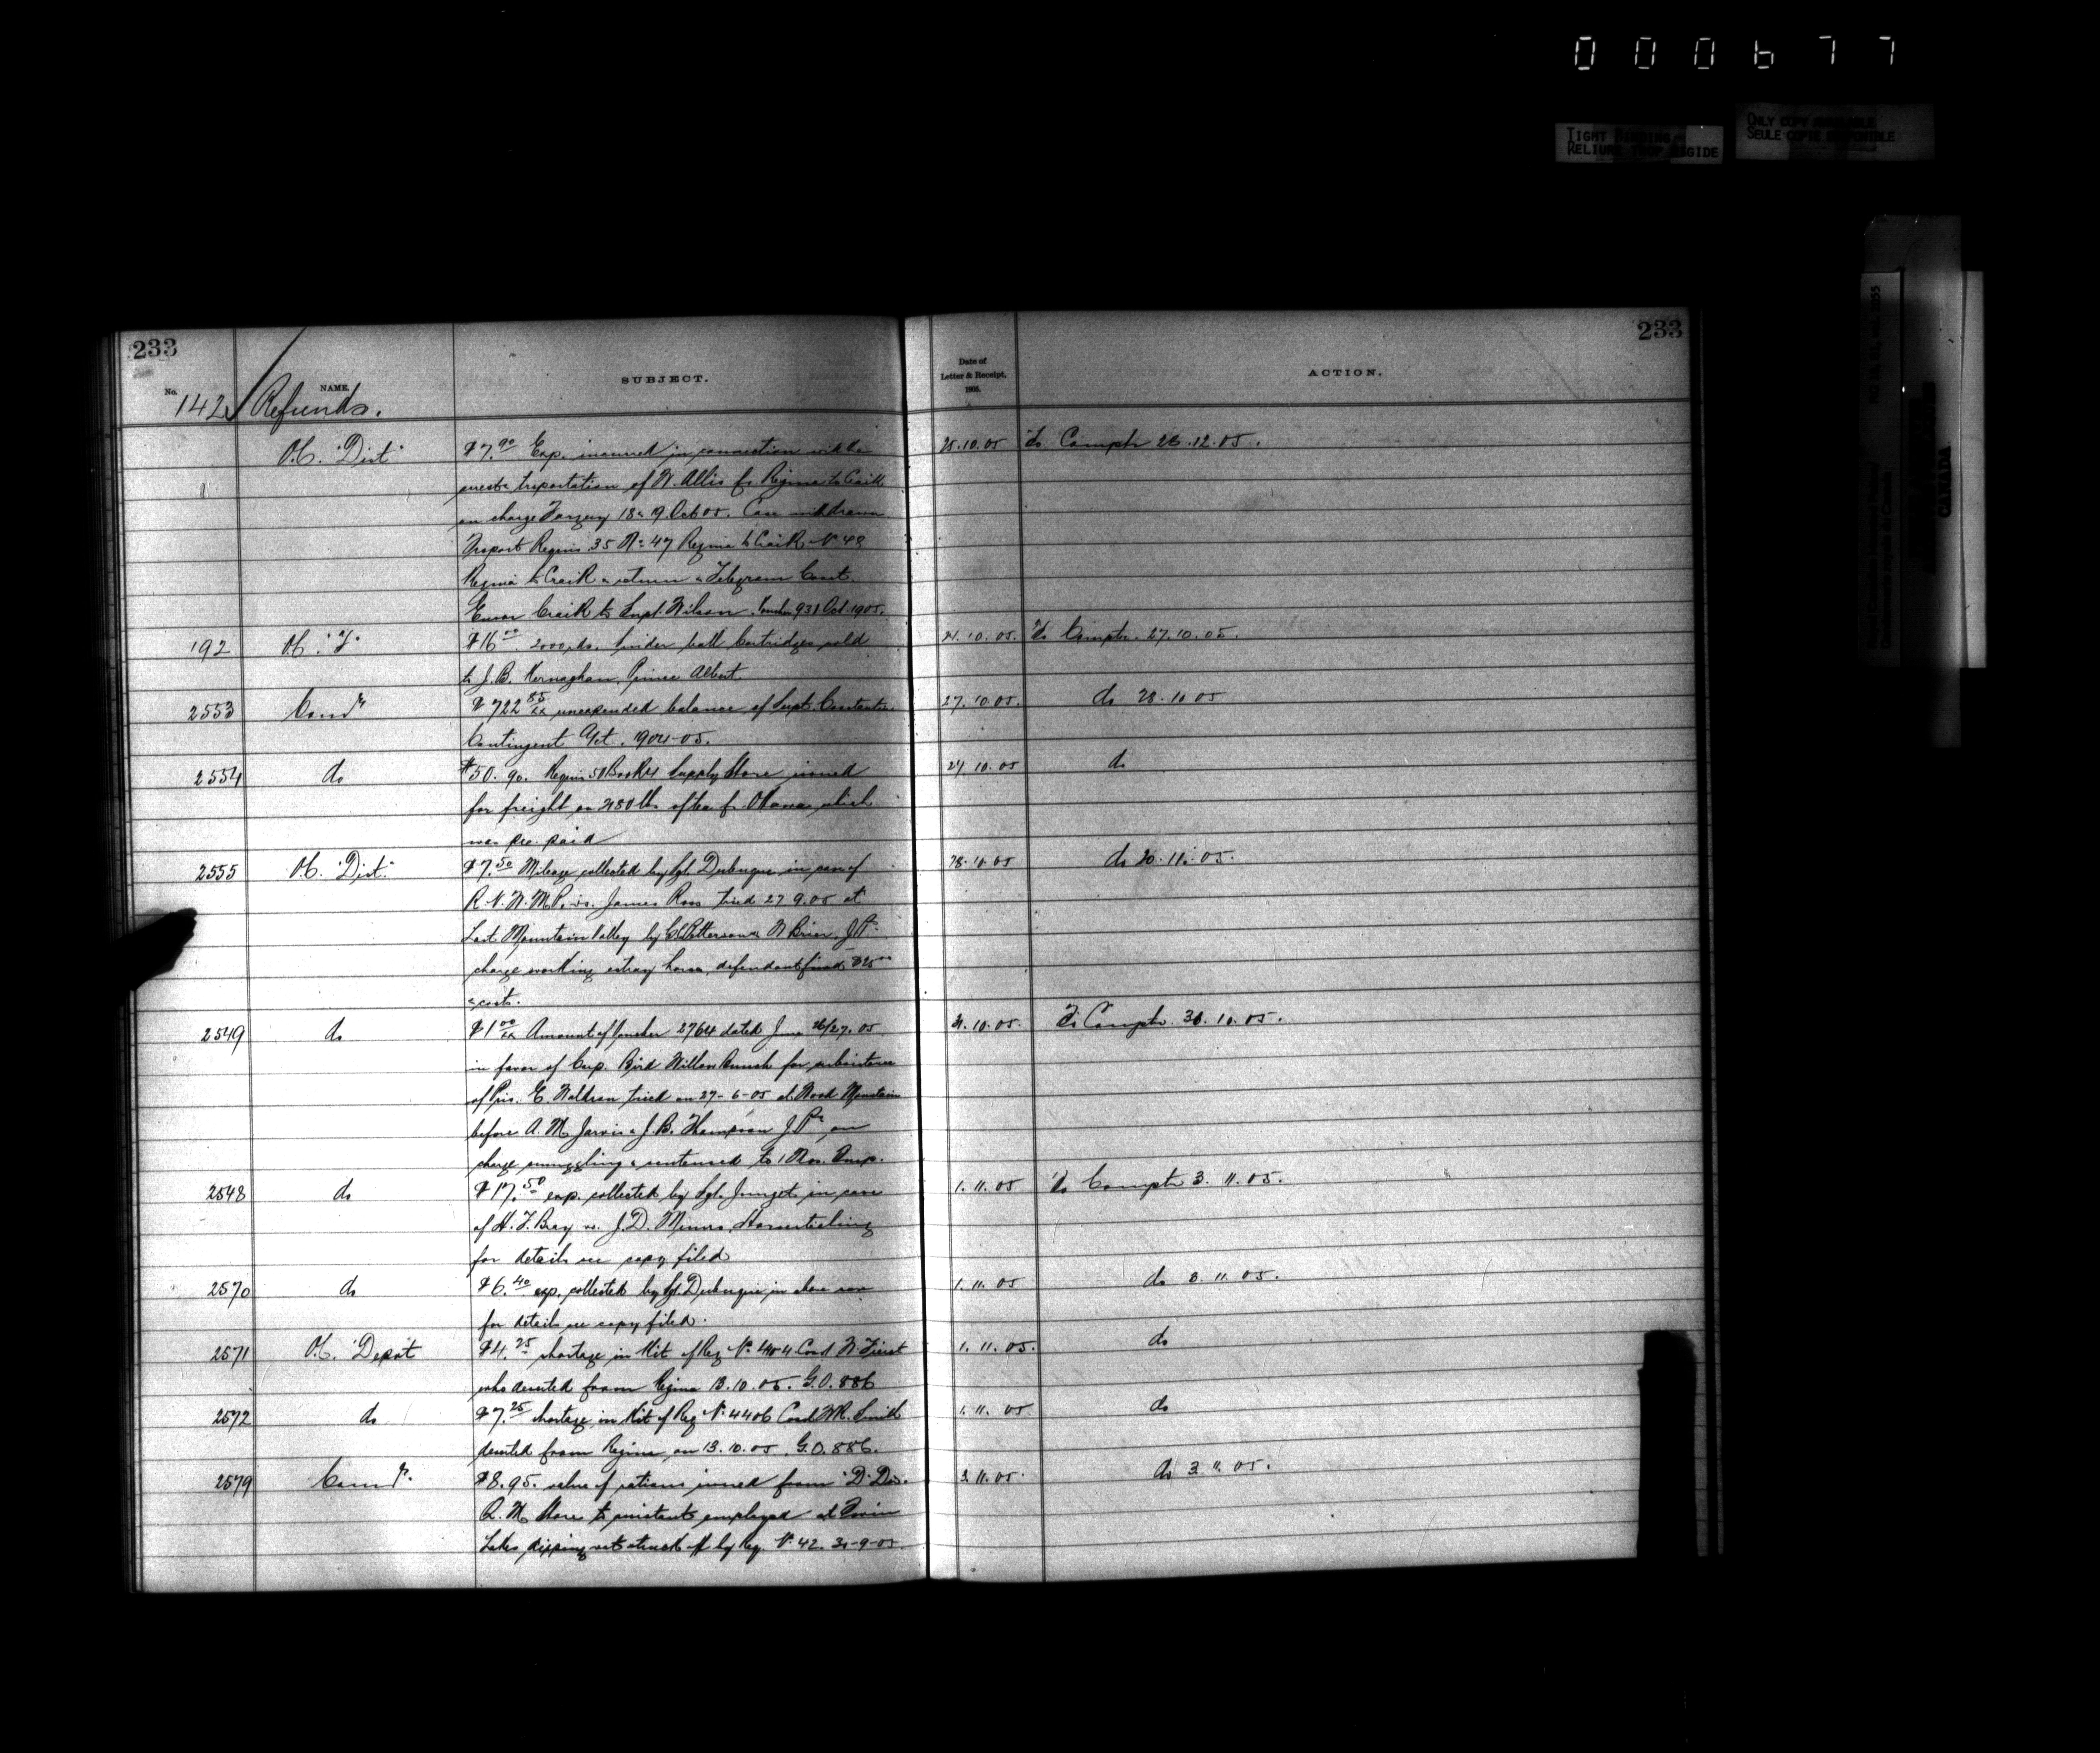 000677
TIGHT BINDING
RELIURE TROP RIGIDE
ONLY COPY AVAILABLE
SEULE COPIE DISPONIBLE
CANADA
233
233
No.
NAME.
SUBJECT.
Date of
Letter & Receipt,
1905.
ACTION.
142 Refunds.
O.C. "Dist" $7.90 Exp. incurred in connection with 25.10.05 To Comptr 26.12.05.
arrest & trsportation of W. Allis fr. Regina to Craik
on charge Forgery 18 & 19 Oct 05. Case withdrawn
Trsport Requis 35 No 47 Regina to Craik, No 48
Regina to Craik & return & Telegram Const.
Craik to Supt. Wilson. Voucher 931 Oct. 1905.
192 O.C. "F" $16.00 2000 rds. Snider ball Cartridges sold 21.10.05. To Comptr. 27.10.05.
to J.B. Kernaghan, Prince Albert.
2553 Comr $722.85 unexpended balance of Supt. Constantine 27.10.05. do 28.10 05
Contingent Act. 1904-05.
2554 do $50.90. Requis 51 Book 4 Supply Store issued 27.10.05 do
for freight on 2180 lbs of tea fr. Ottawa which
was pre. paid
2555 O.C. "Dist." $7.50 Mileage collected by Sgt. Dubuque in case of 28.10.05 do 20.11.05.
R.N.W.M.P. vs. James Ross tried 27 9.05 at
Last Mountain Valley by Patterson & W Brier, J.Ps.
charge working estray horse, defendant fined $25.00
& costs.
2549 do $1.00 Amount of Voucher 2764 dated June 26/27.05 31.10.05. To Comptr. 30.10.05.
in favor of Corp. Bird Willow Bunch for subsistence
of Pris. E. tried on 27-6-05 at Wood Mountain
before A.M. Jarvis & J.B. Thompson J.Ps, on
charge smuggling & sentenced to 1 Mos. Imp.
2548 do $17.50 exp. collected by Sgt. Junget in case 1.11.05 To Comptr 3.11.05.
of H.F. Bray vs. J.D. Munro Horsestealing
for details see copy filed
2570 do $6.40 exp. collected by Sgt. Dubuque in above case 1.11.05 do 8.11.05.
for details see copy filed.
2571 O.C. "Depot $4.25 shortage in Kit of Reg No. Const W. 1.11.05. do
who deserted from Regina 13.10.05. G.O. 886
2572 do $7.25 shortage in Kit of Reg No. 4406 Const W.R. Smith 1.11.05 do
deserted from Regina on 13.10.05 G.O. 886.
2579 Comr. $8.95. value of rations issued from "D" Div. 3.11.05. do 3.11.05.
Q.M. Store to assistants employed at Twin
Lakes dipping vat struck off by Reg. No. 42. 30-9-05.